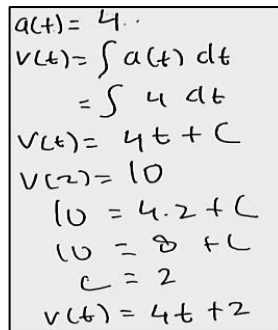 a(t) = 4..
v(t) = ∫ a(t) dt
= ∫ 4 dt
v(t) = 4t + C
v(2) = 10
10 = 4.2 + C
10 = 8 + C
c = 2
v(t) = 4t + 2